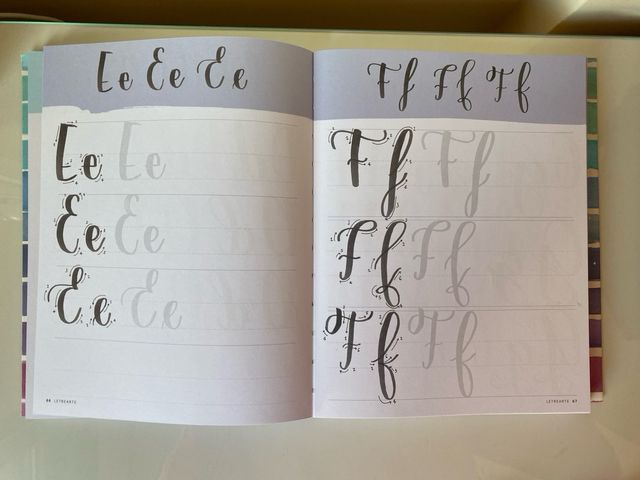 Ee Ee Ee
Ee Ee
Ee Ee
Ee Ee
66 LETREARTE
Ff Ff Ff
Ff Ff
Ff Ff
Ff Ff
LETREARTE 67